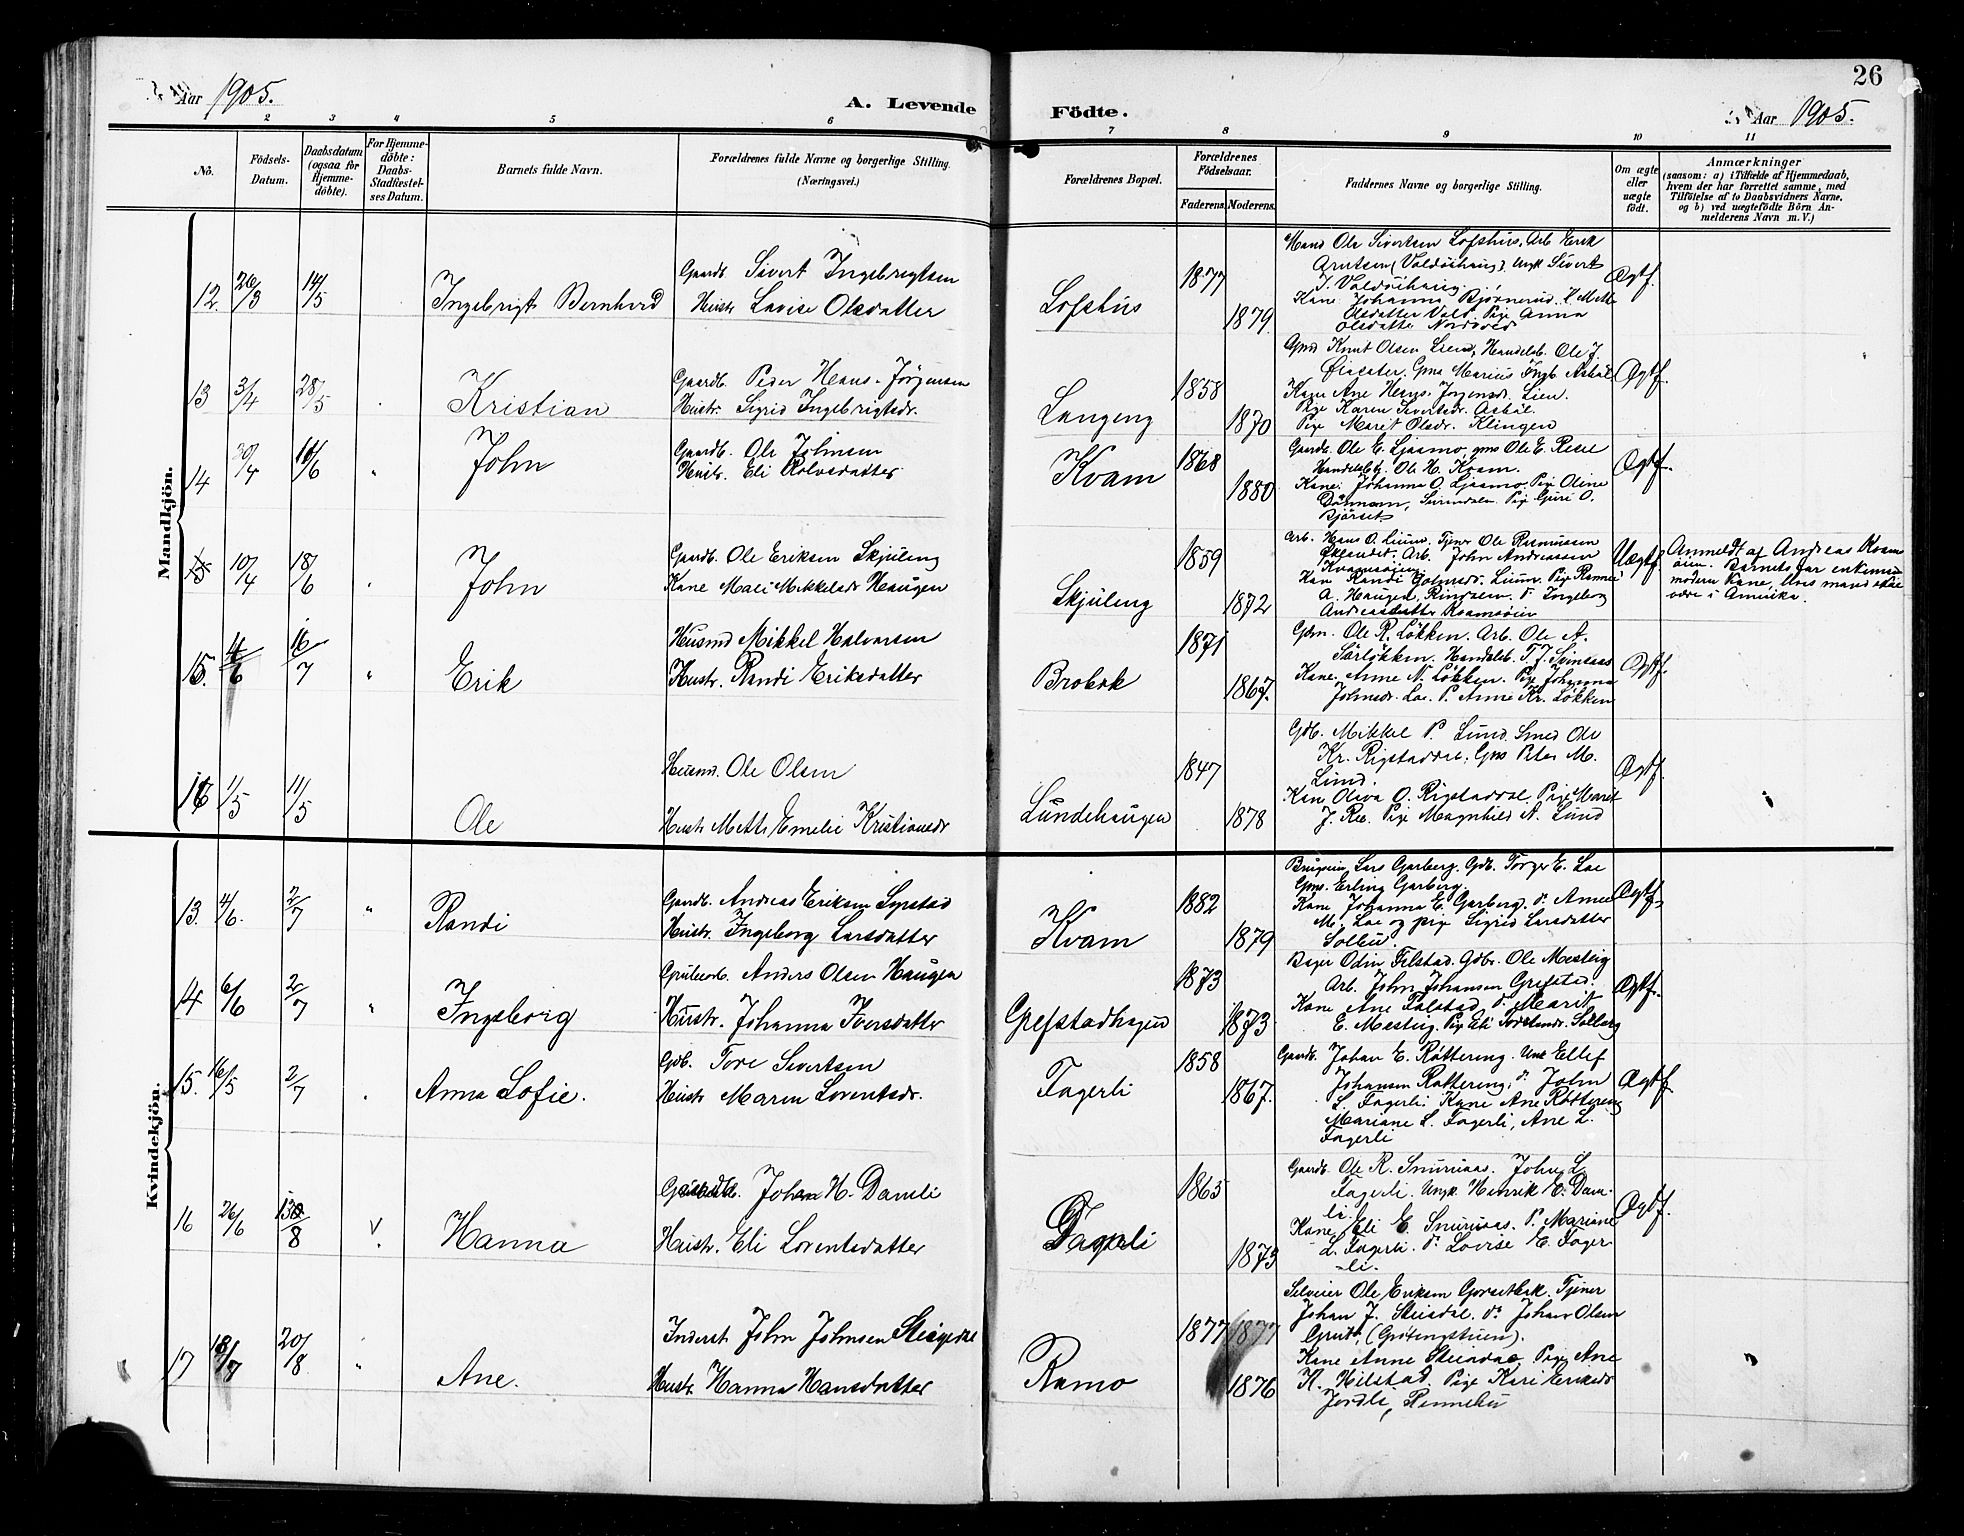 26
Aar 1905.
A. Levende Födte.
Aar 1905.
1 2 3 4 5 6 7 8 9 10 11
No.
Födsels-Datum.
Daabsdatum (ogsaa for Hjemme-döbte).
For Hjemme-döbte: Daabs-Stadfæstel-ses Datum.
Barnets fulde Navn.
Forældrenes fulde Navne og borgerlige Stilling. (Næringsvei.)
Forældrenes Bopæl.
Forældrenes Födselsaar.
Faderens. Moderens.
Faddernes Navne og borgerlige Stilling.
Om ægte eller uægte født.
Anmærkninger
(saasom: a) i Tilfælde af Hjemmedaab,
hvem der har forrettet samme, med
Tilföielse af to Daabsvidners Navne,
og b) ved uægtefödte Börn An-
melderens Navn m. V.)
Mandkjön.
12. 26/3 14/5 Ingebrigt Bernhard
Gaardb. Sivert Ingebrigtsen
Hustr. Lovise Olsdatter
Lofshus 1877 1879
Ole Sivertsen Lofshus. Arb Erik
Kane Johanna Bjørnerud.
Olsdatter Pige Anna
Olsdatter
Ægtf.
13 3/4 28/5 Kristian
Gaardb. Peder Hans-Jörgensen
Hustr. Sigrid Ingebrigtsdr.
Langeng 1858 1870
Knut Olsen Lien, Handelsb. Ole J.
Gms Marius Ingb. Asböl
Kane Ane Hans-Jörgensdr. Lien.
Pige Karen Sivertsdr. Asböl.
Pige Marit Olsdr. Klingen
Ægtf.
14 30/4 11/6 John
Gaardb. Ole Johnsen
Hustr. Eli Rolvsdatter
Kvam 1868 1880
Gaardb. Ole E. Ljaamo, gms Ole E.
Handelsbtj. Ole H. Kvam.
Kane: Johanna O. Ljaamo. Pige Oline
Pige Guri O.
Bjørset
Ægtf.
15 10/4 18/6 John
Gaardb. Ole Eriksen Skjuleng
Kane Mali Mikkelsdr Haugen
Skjuleng 1859 1872
Arb. Hans O. Tjener Ole Rasmussen
Arb. John Andreassen
Kvamsøien
Kan Randi Pige
A. Haugen, Rindalen. Ingeborg
Andreasdatter Kvamsøien
Uægtf.
Anmeldt af Andreas Kvam
øien. Barnets far enkemand
modern Kane, hvis mand skal
være i Amerika.
15. 4/6 16/7 Erik
Husmd Mikkel Halvorsen
Hustr. Randi Eriksdatter
Brobak 1871 1867.
Gdm. Ole R. Løkken. Arb. Ole A.
Sørløkken. Handelsb. T. J. Svinsaas
Kane Anne N. Løkken. Pige Johanna
Johnsdr. Loe. P. Anne Kr. Løkken
Ægtf.
16 1/5 11/5 Ole
Husmd. Ole Olsen
Hustr Mette Emelie Kristiansdr
Lundehaugen 1847 1878
Gdb. Mikkel P. Lund. Smed Ole
Kr. Rigstaddal. Gms Peter M.
Lund.
Kan Oliva O. Rigstaddal. Pige Marit
J. Pige Magnhild N. Lund
Ægtf.
Kvindekjön.
13. 4/6. 2/7 Randi
Gaardb. Andreas Eriksen Syrstad
Hustr. Ingeborg Larsdatter
Kvam 1882 1879
Lars Garberg. Gdb. Torger E. Loe
Gms. Erling Garberg.
Kane Johanna E. Garberg. Anne
M. Loe og pige Sigrid Larsdatter
Solbu.
Ægtf.
14 6/6 2/7 Ingeborg
Grubearb. Anders Olsen Haugen
Hustr. Johanna Iversdatter
Grefstadhagen 1873 1873.
Bager Odin Filstad. Gdbr. Ole Mesteig
Arb. John Johansen Grefstad.
Kane Ane Falstad Marit
E. Mesteig. Pige Eli Solberg
Ægtf.
15. 16/5 2/7 Anna Sofie.
Gdb. Tore Sivertsen
Hustr Maren Lorentsdr.
Fagerli 1858 1867.
Gaardb. Johan E. Røttering. Unk Ellef
Johansen Røttering, d. John
L. Fagerli. Kane Ane Røttering
Mariane L. Fagerli, Ane L.
Fagerli
Ægtf.
16 26/6 13/8 v Hanna
Johan H. Damli
Hustr. Eli Lorentsdatter
Fagerli 1865 1873
Gaardb. Ole R. Snuruaas. John L.
Fagerli. Ungk. Henrik E. Dam-
li.
Kane Eli E. Snuruaas. P. Mariane
L. Fagerli. d. Lovise E. Fager
-li.
Ægtf.
17 18/7 20/8 Ane.
Inderst John Johnsen
Hustr. Hanna Hansdatter
Ramo 1877 1877 1876
Ole Eriksen Tjener
Johan J. Steindal. do Johan Olsen
Grut. (Grötingstuen).
Kane Anne Steindal. Pige Ane
H. Hilstad. Pige Kari Eriksdr
Jordli, Rennebu